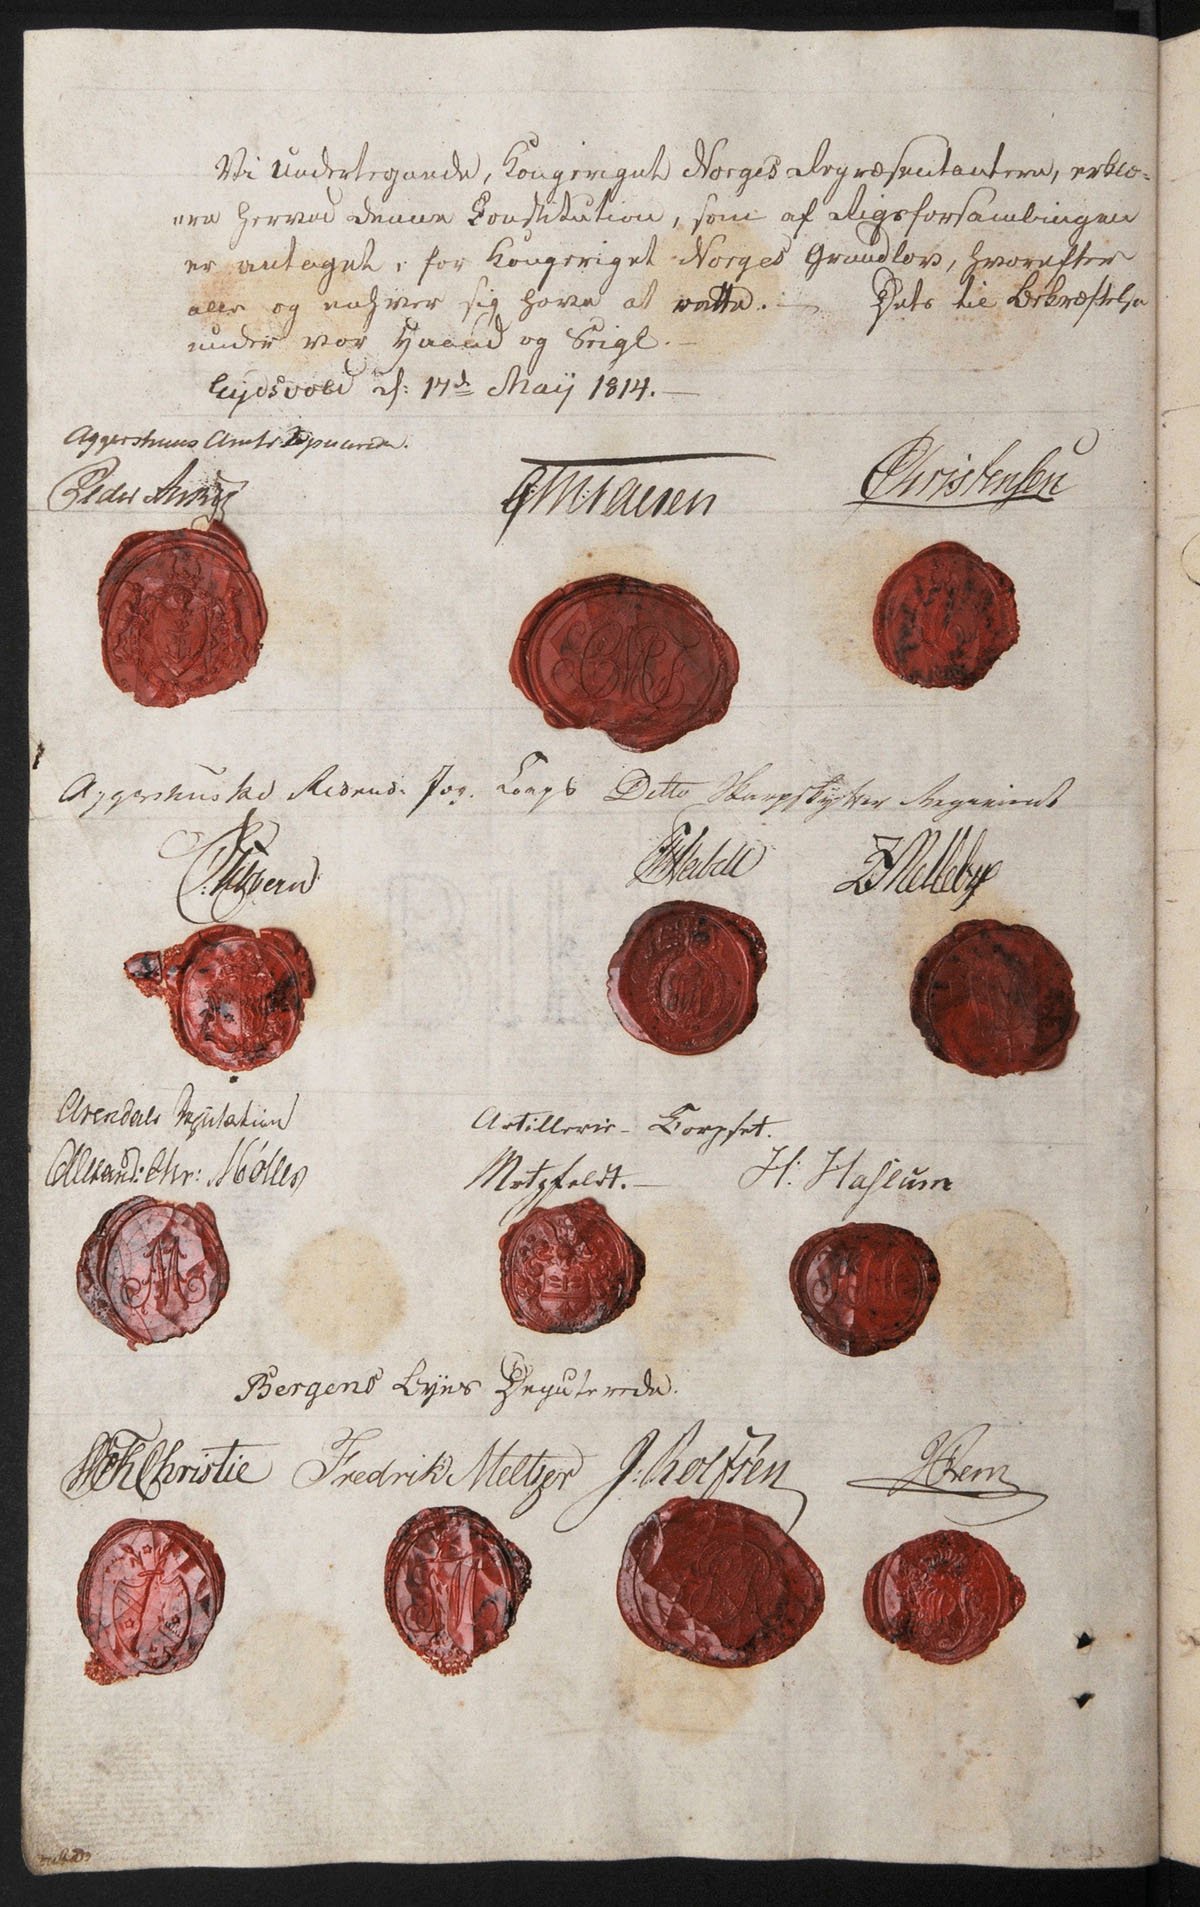 Vi undertegnede, Kongeriget Norges Repræsentantere, erklæ=
ere herved denne Constitution, som af Rigsforsamlingen
er antaget, for Kongeriget Norges Grundlov, hvorefter
alle og enhver sig have at rætte. — Dets til Bekræftelse
under vor Haand og Seigl. —
Eydsvold d: 17de Maÿ 1814. —
Aggershuus Amts Deputerede.
Peder Anker
CMFalsen
Christensen
Aggershuske Ridend. Jæg. Corps
Ditto Skarpskytter Regiment
Wedell
ZMellebye
Arendals Deputation
Artillerie - Corpset.
Alexand: Chr: Møller
Motzfeldt. —
H: Haslum
Bergens Byes Deputerede.
WFKChristie
Fredrik Meltzer
J: Rolfsen
JRem